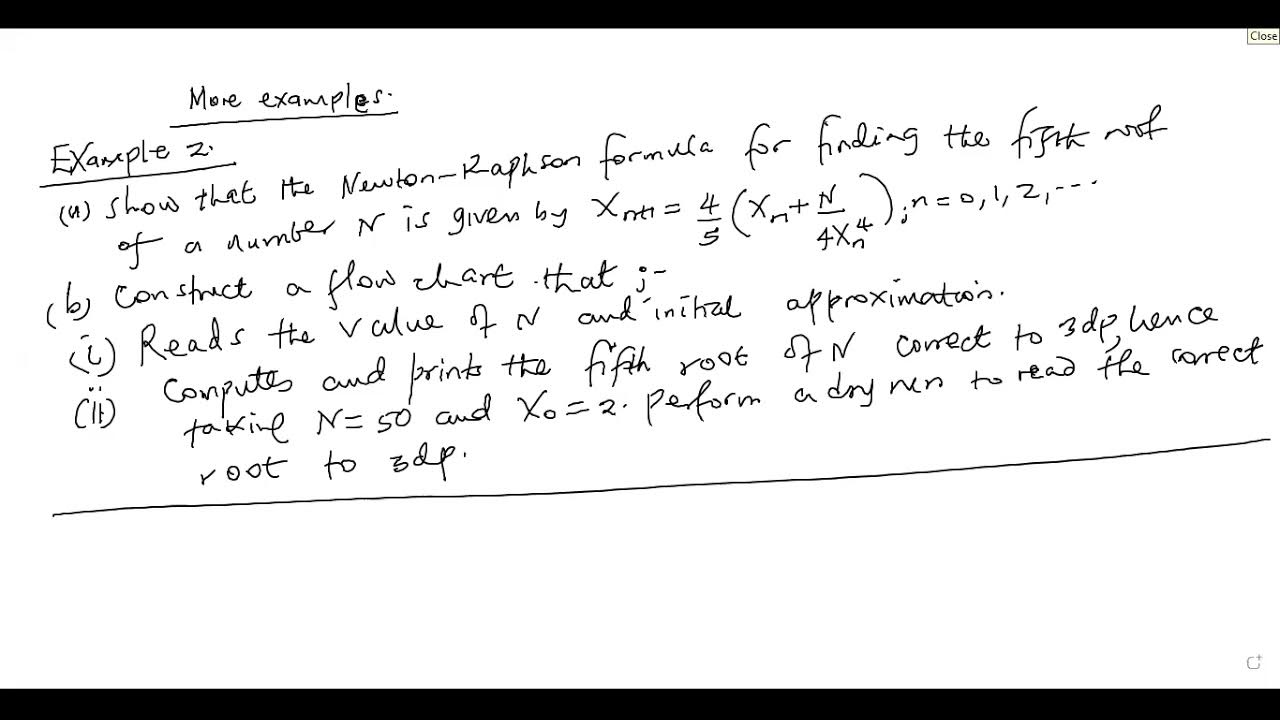 Close
More examples.
Example 2.
(a) show that the Newton-Raphson formula for finding the fifth root
of a number N is given by Xn+1 = 4/5 (Xn + N/4Xn^4) ; n = 0, 1, 2, ...
(b) Construct a flow chart that ;-
(i) Reads the value of N and initial approximation.
(ii) Computes and prints the fifth root of N correct to 3dp, hence
taking N = 50 and X0 = 2. perform a dry run to read the correct
root to 3dp.